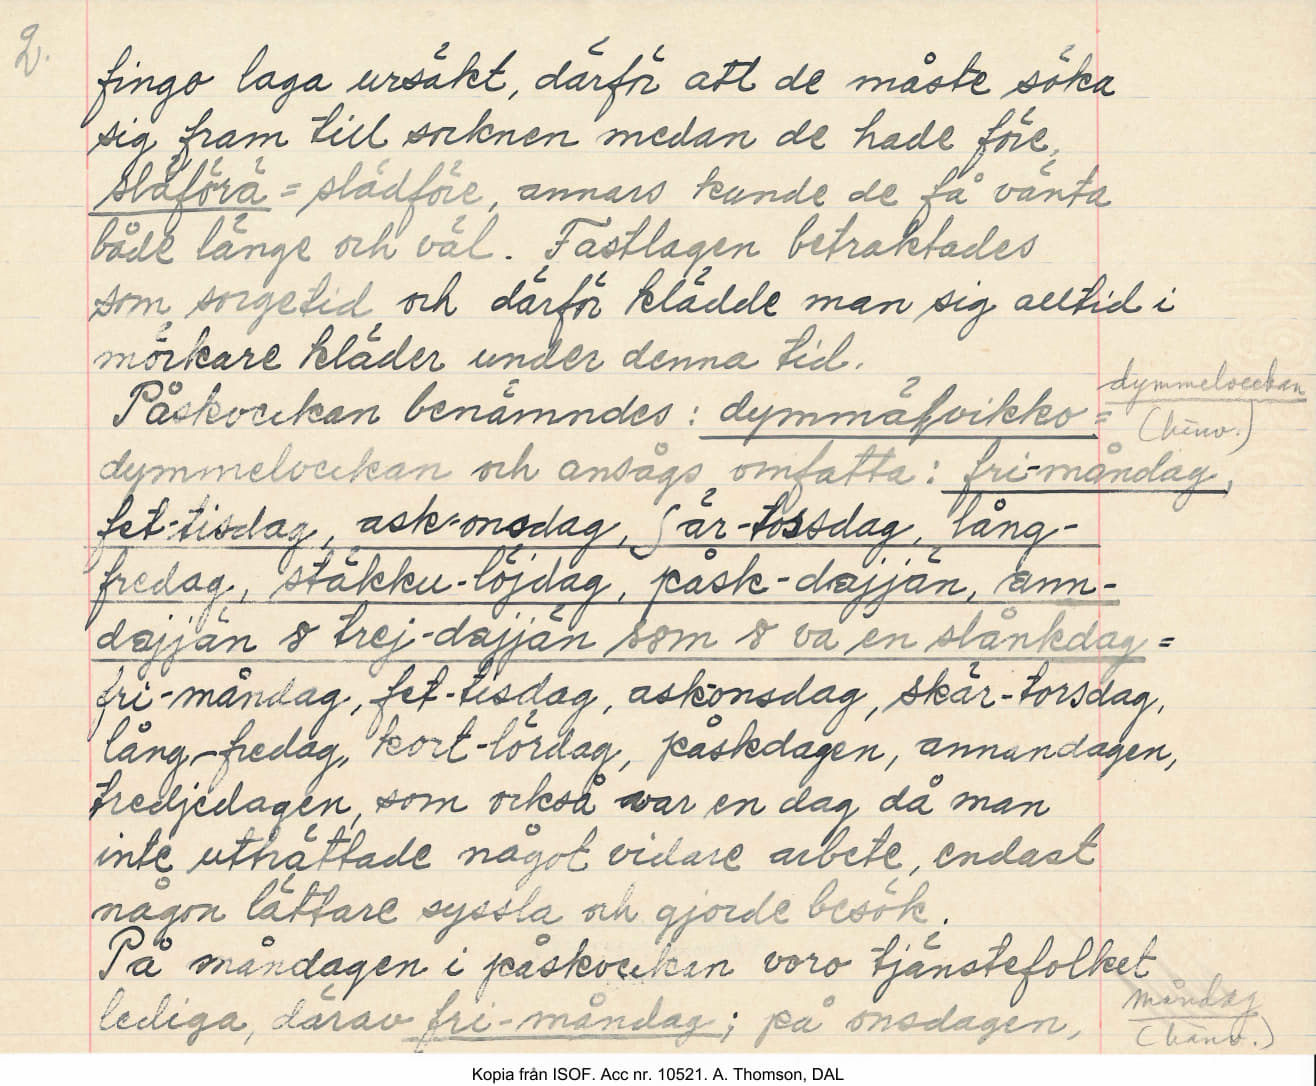 2.
fingo laga ursäkt, därför att de måste söka
sig fram till socknen medan de hade före,
släförä = slädföre, annars kunde de få vänta
både länge och väl. Fastlagen betraktades
som sorgetid och därför klädde man sig alltid i
mörkare kläder under denna tid.
Påskveckan benämndes: dymmäľvikko =
dymmelveckan
(hänv.)
dymmelveckan och ansågs omfatta: fri-måndag,
fet-tisdag, ask-onsdag, ʃär-tossdag, lång-
fredag, stäkku-löjdag, påsk-dajjän, änn-
dajjän 8 trej-dajjän som 8 va en slånkdag =
fri-måndag, fet-tisdag, askonsdag, skär-torsdag,
lång-fredag, kort-lördag, påskdagen, annandagen,
tredjedagen, som också var en dag då man
inte uträttade något vidare arbete, endast
någon lättare syssla och gjorde besök.
På måndagen i påskveckan voro tjänstefolket
lediga, därav fri-måndag; på onsdagen,
måndag
(hänv.)
Kopia från ISOF. Acc nr. 10521. A. Thomson, DAL